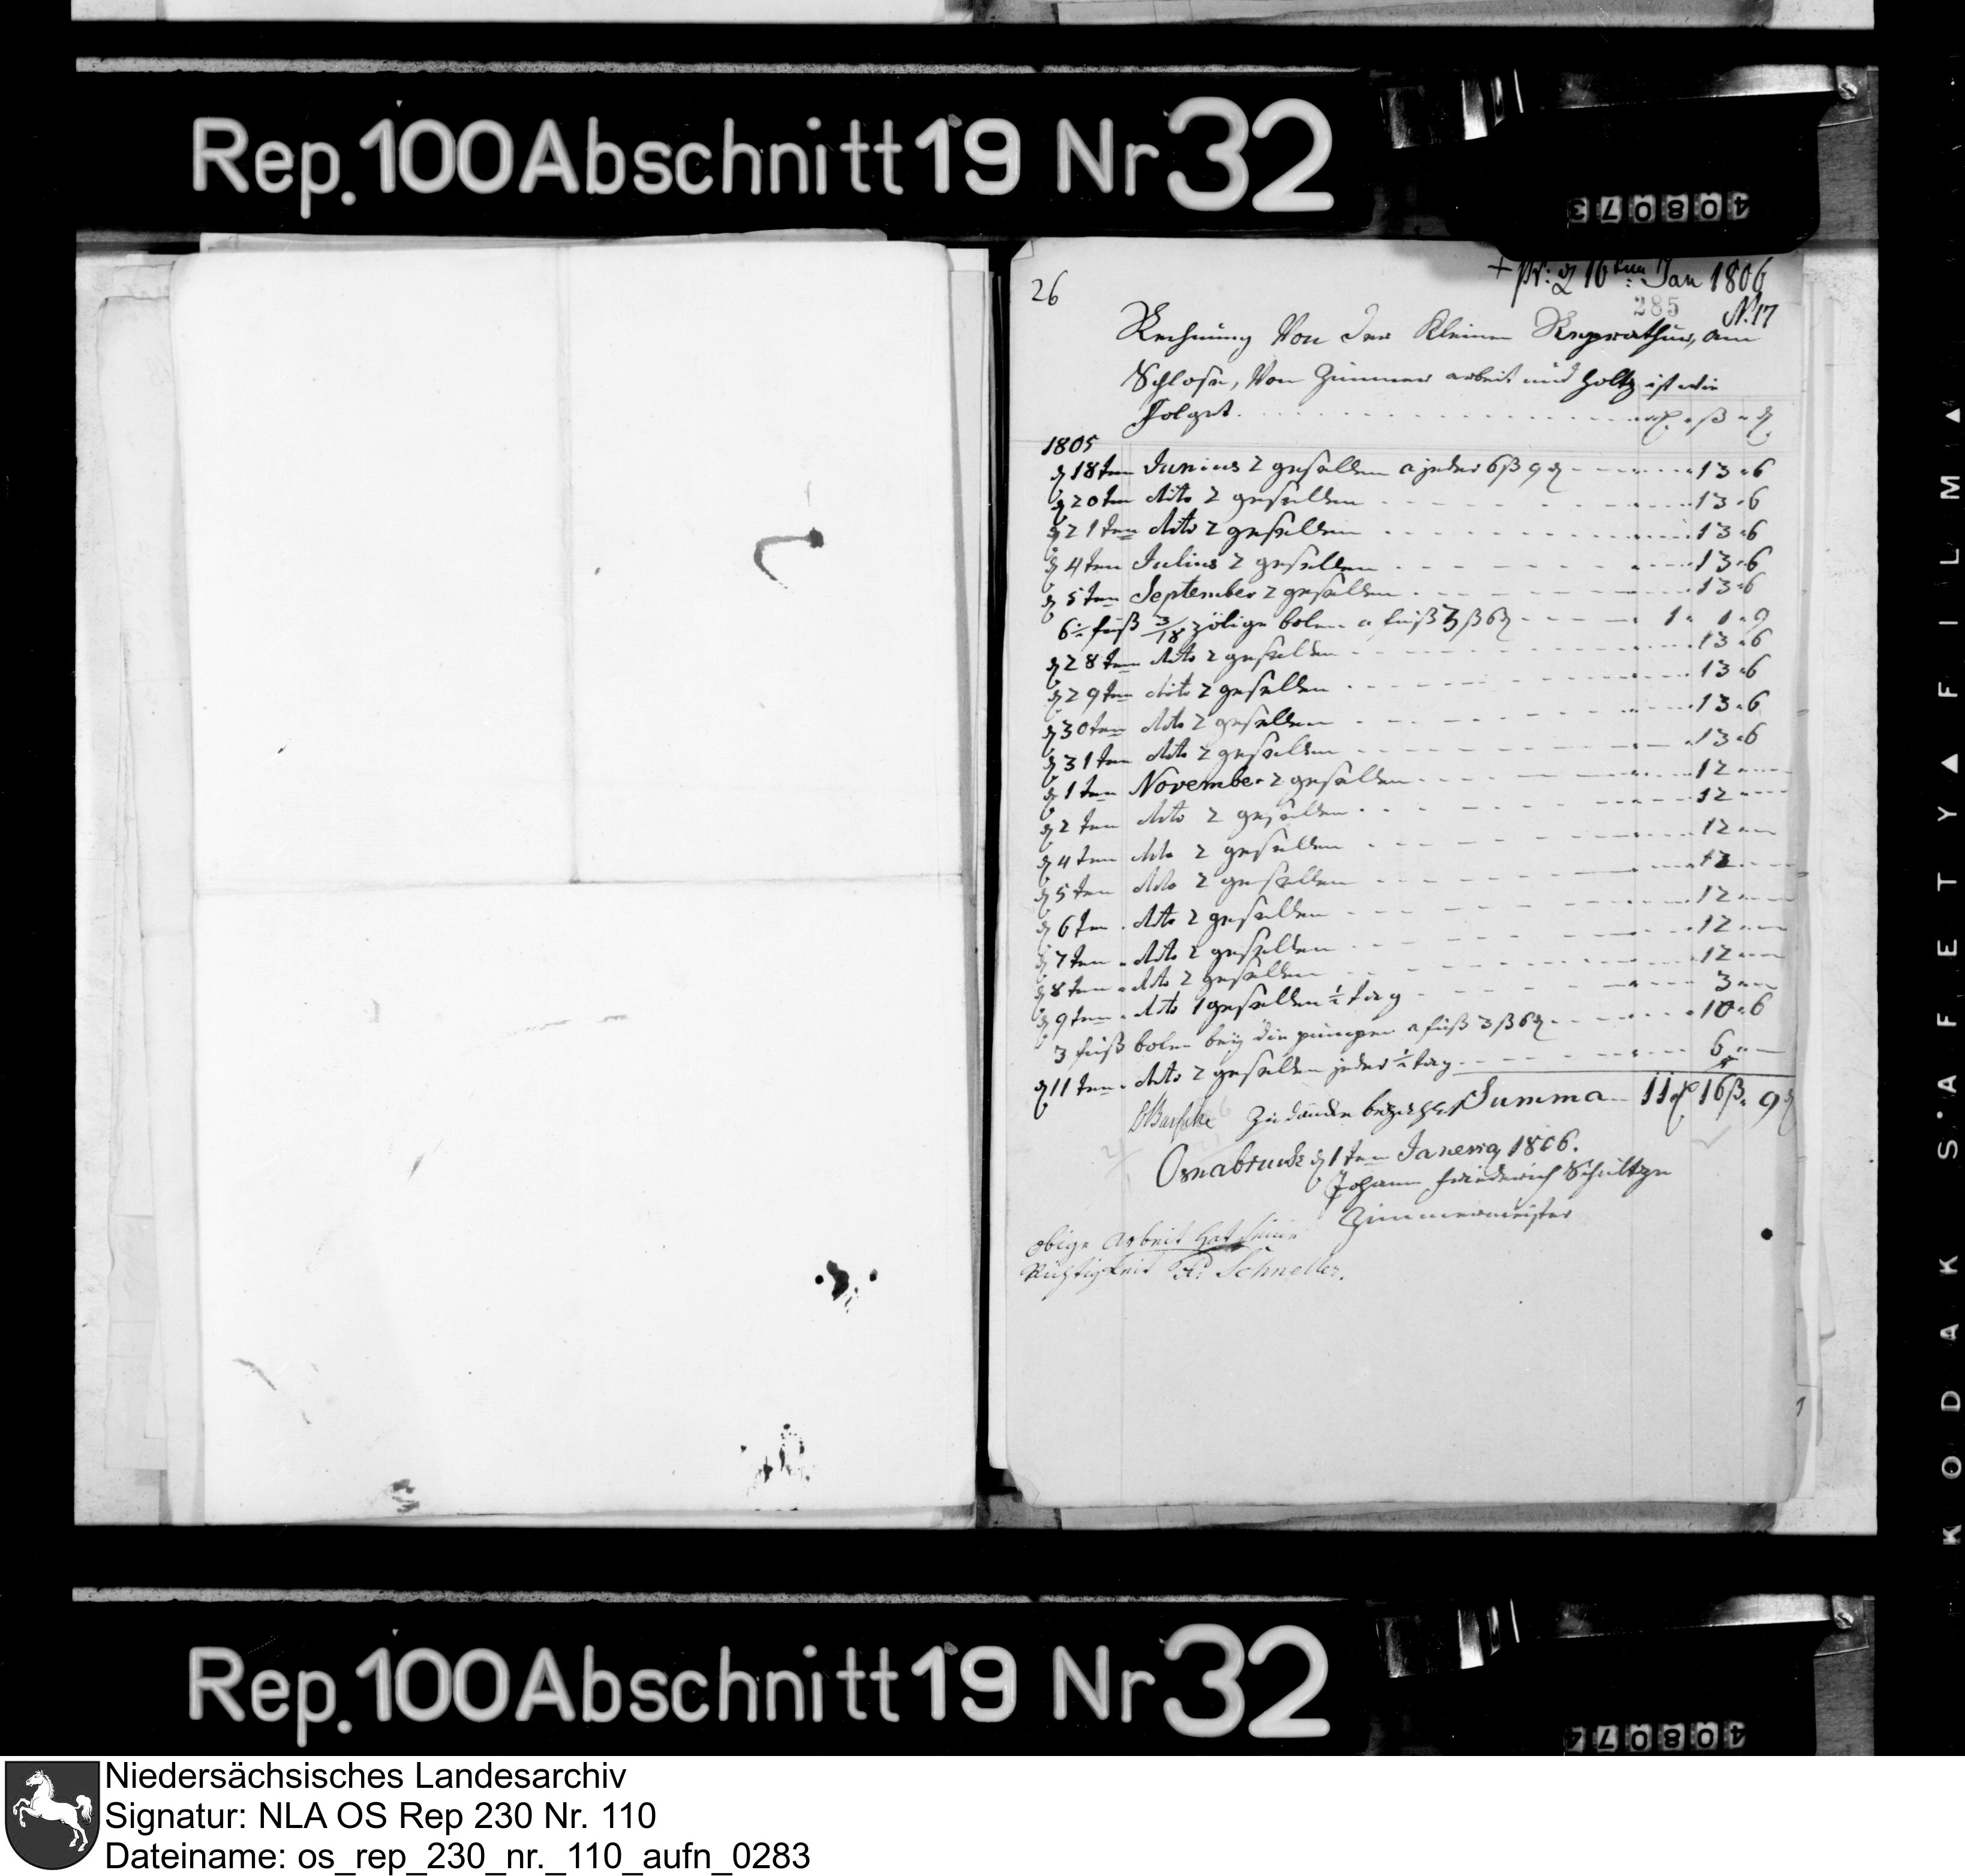 Rep. 100 Abschnitt 19 Nr 32
408073
26
+ pr: d 16ten Jan 1806
285
N. 17
Rechnung Von der Kleinen Reprathur, am
Schlose, Von Zimmer arbeit und Holtz ist wie
Folget. ß
1805
d 18ten Junius 2 gesellen a jeder 6 ß 9 d 13 6
d 20ten dito 2 gesellen 13 6
d 21ten dito 2 gesellen 13 6
d 4ten Julius 2 gesellen 13 6
d 5ten September 2 gesellen 13 6
6 fuß 3/18 zölige bolen a fuß 3 ß 6 d 1 1 9
d 28ten dito 2 gesellen 13 6
d 29ten dito 2 gesellen 13 6
d 30ten dito 2 gesellen 13 6
d 31ten dito 2 gesellen 13 6
d 1ten November 2 gesellen 12
d 2ten dito 2 gesellen 12
d 4ten dito 2 gesellen 12
d 5ten dito 2 gesellen 12
d 6ten dito 2 gesellen 12
d 7ten dito 2 gesellen 12
d 8ten dito 2 gesellen 12
d 9ten dito 1 gesellen 1/2 tag 3
3 fuß bolen bey die pumpen a fuß 3 ß 6 d 10 6
d 11ten dito 2 gesellen jeder 1/2 tag 6
Summa 11 16 ß 9 d
zu danke bezahlt
Osnabruck d 1ten Janewarij 1806.
Johann friederich Schultze
Zimmermeister
obige Arbeit hat seine
Richtigkeit Fr: Schneller.
Rep. 100 Abschnitt 19 Nr 32
408074
KODAK SAFETY FILM
Niedersächsisches Landesarchiv
Signatur: NLA OS Rep 230 Nr. 110
Dateiname: os_rep_230_nr._110_aufn_0283